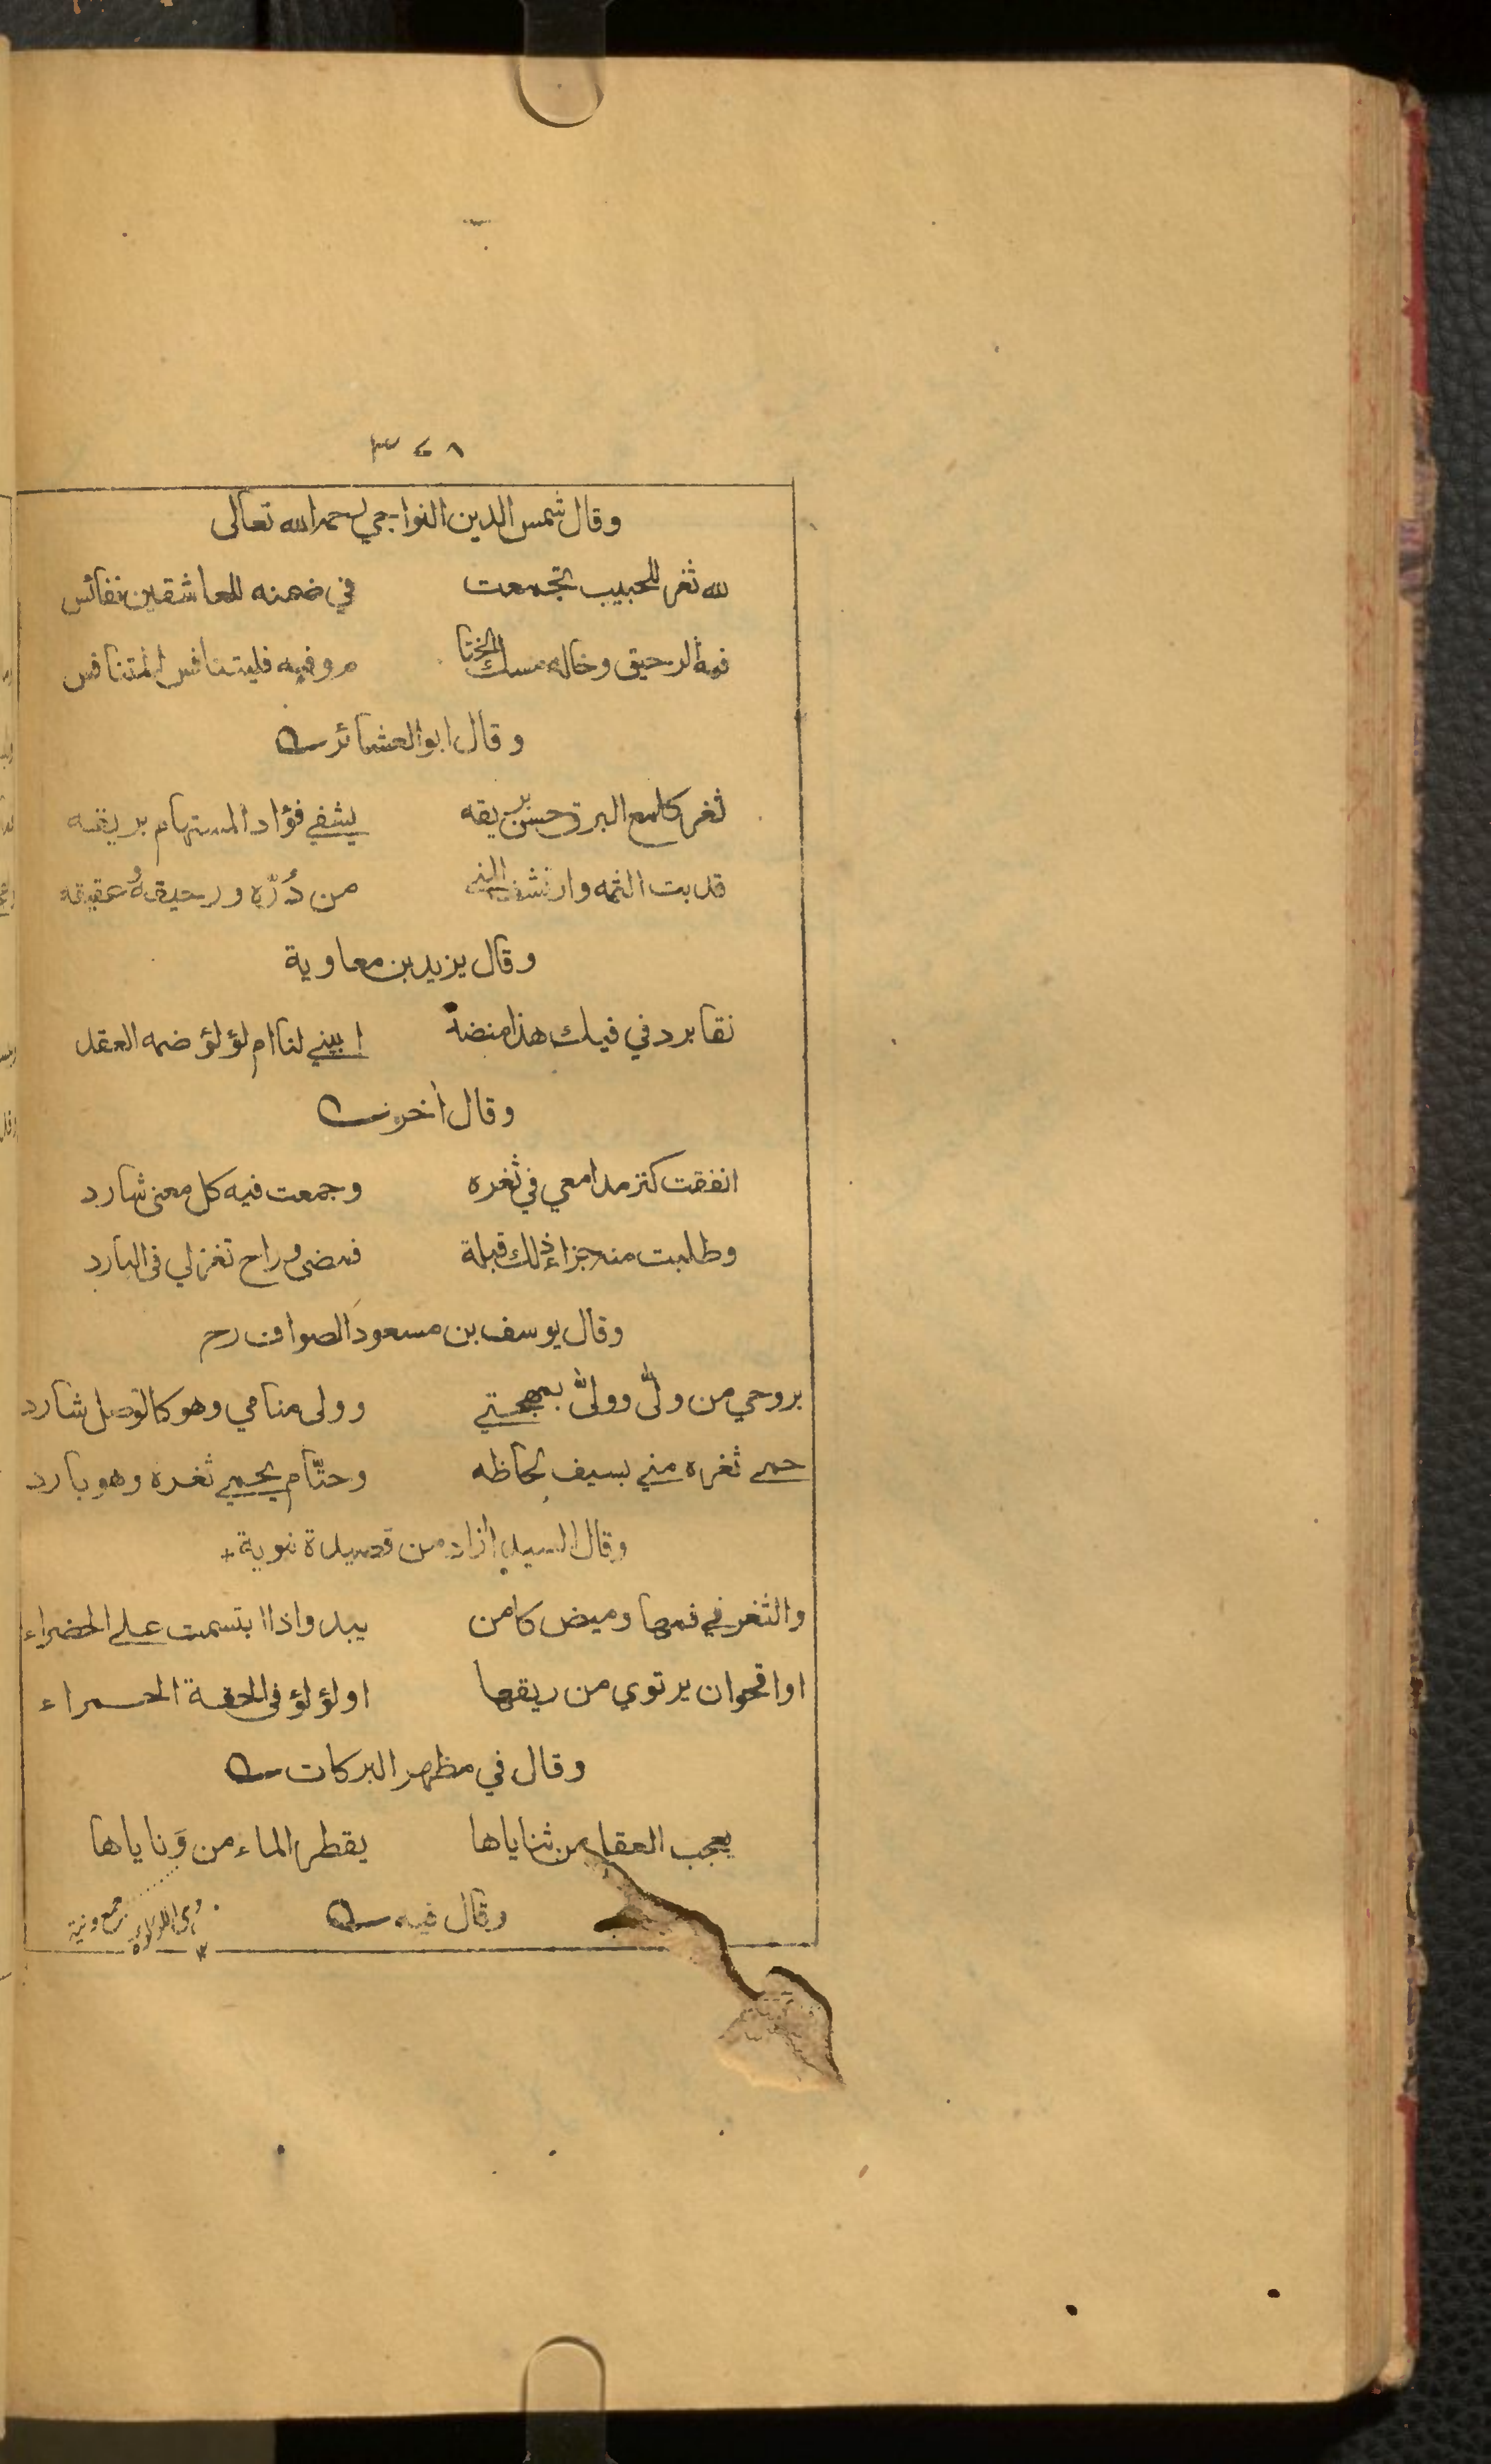 ٣٤٨
وقال شمس الدين النواجي رحمه الله تعالى
لله ثغر للحبيب تجمعت في ضمنه للعاشقين نفائس
فمه الرحيق وخاله مسك الختا م وفيه فليتنافس المتنافس
وقال ابو العشائر
ثغر كلمع البرق حسن بريقه يشفي فؤاد المستهام بريقه
قد بت الثمه وارتشف المنى من دُرّه ورحيقه وعقيقه
وقال يزيد بن معاوية
نقا برد في فيك هذا منضة ابيني لنا ام لؤلؤ ضمه العقد
وقال أخر
انفقت كنز مدامعي في ثغره وجمعت فيه كل معنى شارد
وطلبت منه جزاء ذلك قبلة فمضى وراح تغزلي في البارد
وقال يوسف بن مسعود الصواف رح
بروحي من ولّى وولّى بمهجتي وولى منامي وهو كالوصل شارد
حمى ثغره مني بسيف لحاظه وحتّام يحمي ثغره وهو بارد
وقال السيد أزاد من قصيدة
والثغر في فمها وميض كامن يبدو اذا ابتسمت على الخضراء
او اقحوان يرتوي من ريقها او لؤلؤ في الحقة الحمراء
وقال في مظهر البركات
يعجب العقل من ثناياها يقطر الماء من وَناياها
وقال فيه
جمع ونية